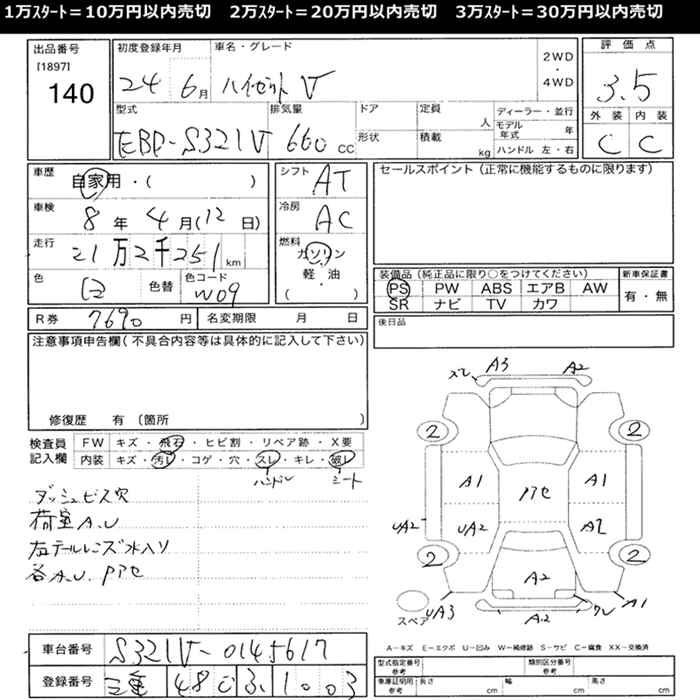 1万ｽﾀｰﾄ＝10万円以内売切　2万ｽﾀｰﾄ＝20万円以内売切　3万ｽﾀｰﾄ＝30万円以内売切
出品番号
[1897]
140
初度登録年月
24 6月
車名・グレード
ハイゼット V
2WD
・
4WD
評価点
3.5
外装 内装
C C
型式
EBD-S321V
排気量
660 CC
ドア
形状
定員 人
積載 kg
ディーラー・並行
モデル年式 年
ハンドル 左・右
車歴
自家用・( )
車検
8年 4月(12日)
走行
21万2千251km
色
白
色替
色コード
W09
シフト
AT
冷房
AC
燃料
ガソリン
・
軽・油
( )
セールスポイント(正常に機能するものに限ります)
装備品(純正品に限り○をつけてください)
PS PW ABS エアB AW
SR ナビ TV カワ
新車保証書
有・無
R券 7690 円 名変期限 月 日
後日品
注意事項申告欄(不具合内容等は具体的に記入して下さい)
修復歴 有 (箇所 )
検査員記入欄
FW キズ・飛石・ヒビ割・リペア跡・X要
内装 キズ・汚レ・コゲ・穴・スレ・キレ・破レ
ハンドル シート
ダッシュビス穴
荷室A.U
左テールレンズ水入り
各A.U. Pアセ
A3 A2
2 2
A1 Pアセ A1
UA2 UA2 A2
2 2
A2
スペア
UA3 A2 ワレ A1
A－キズ E－エクボ U－凹み W－補修跡 S－サビ C－腐食 XX－交換済
車台番号 S321V-0145617
登録番号 三重 480 ふ 1003
型式指定番号 参考
類別区分番号 参考
車庫証明用 参考 長さ cm 幅 cm 高さ cm